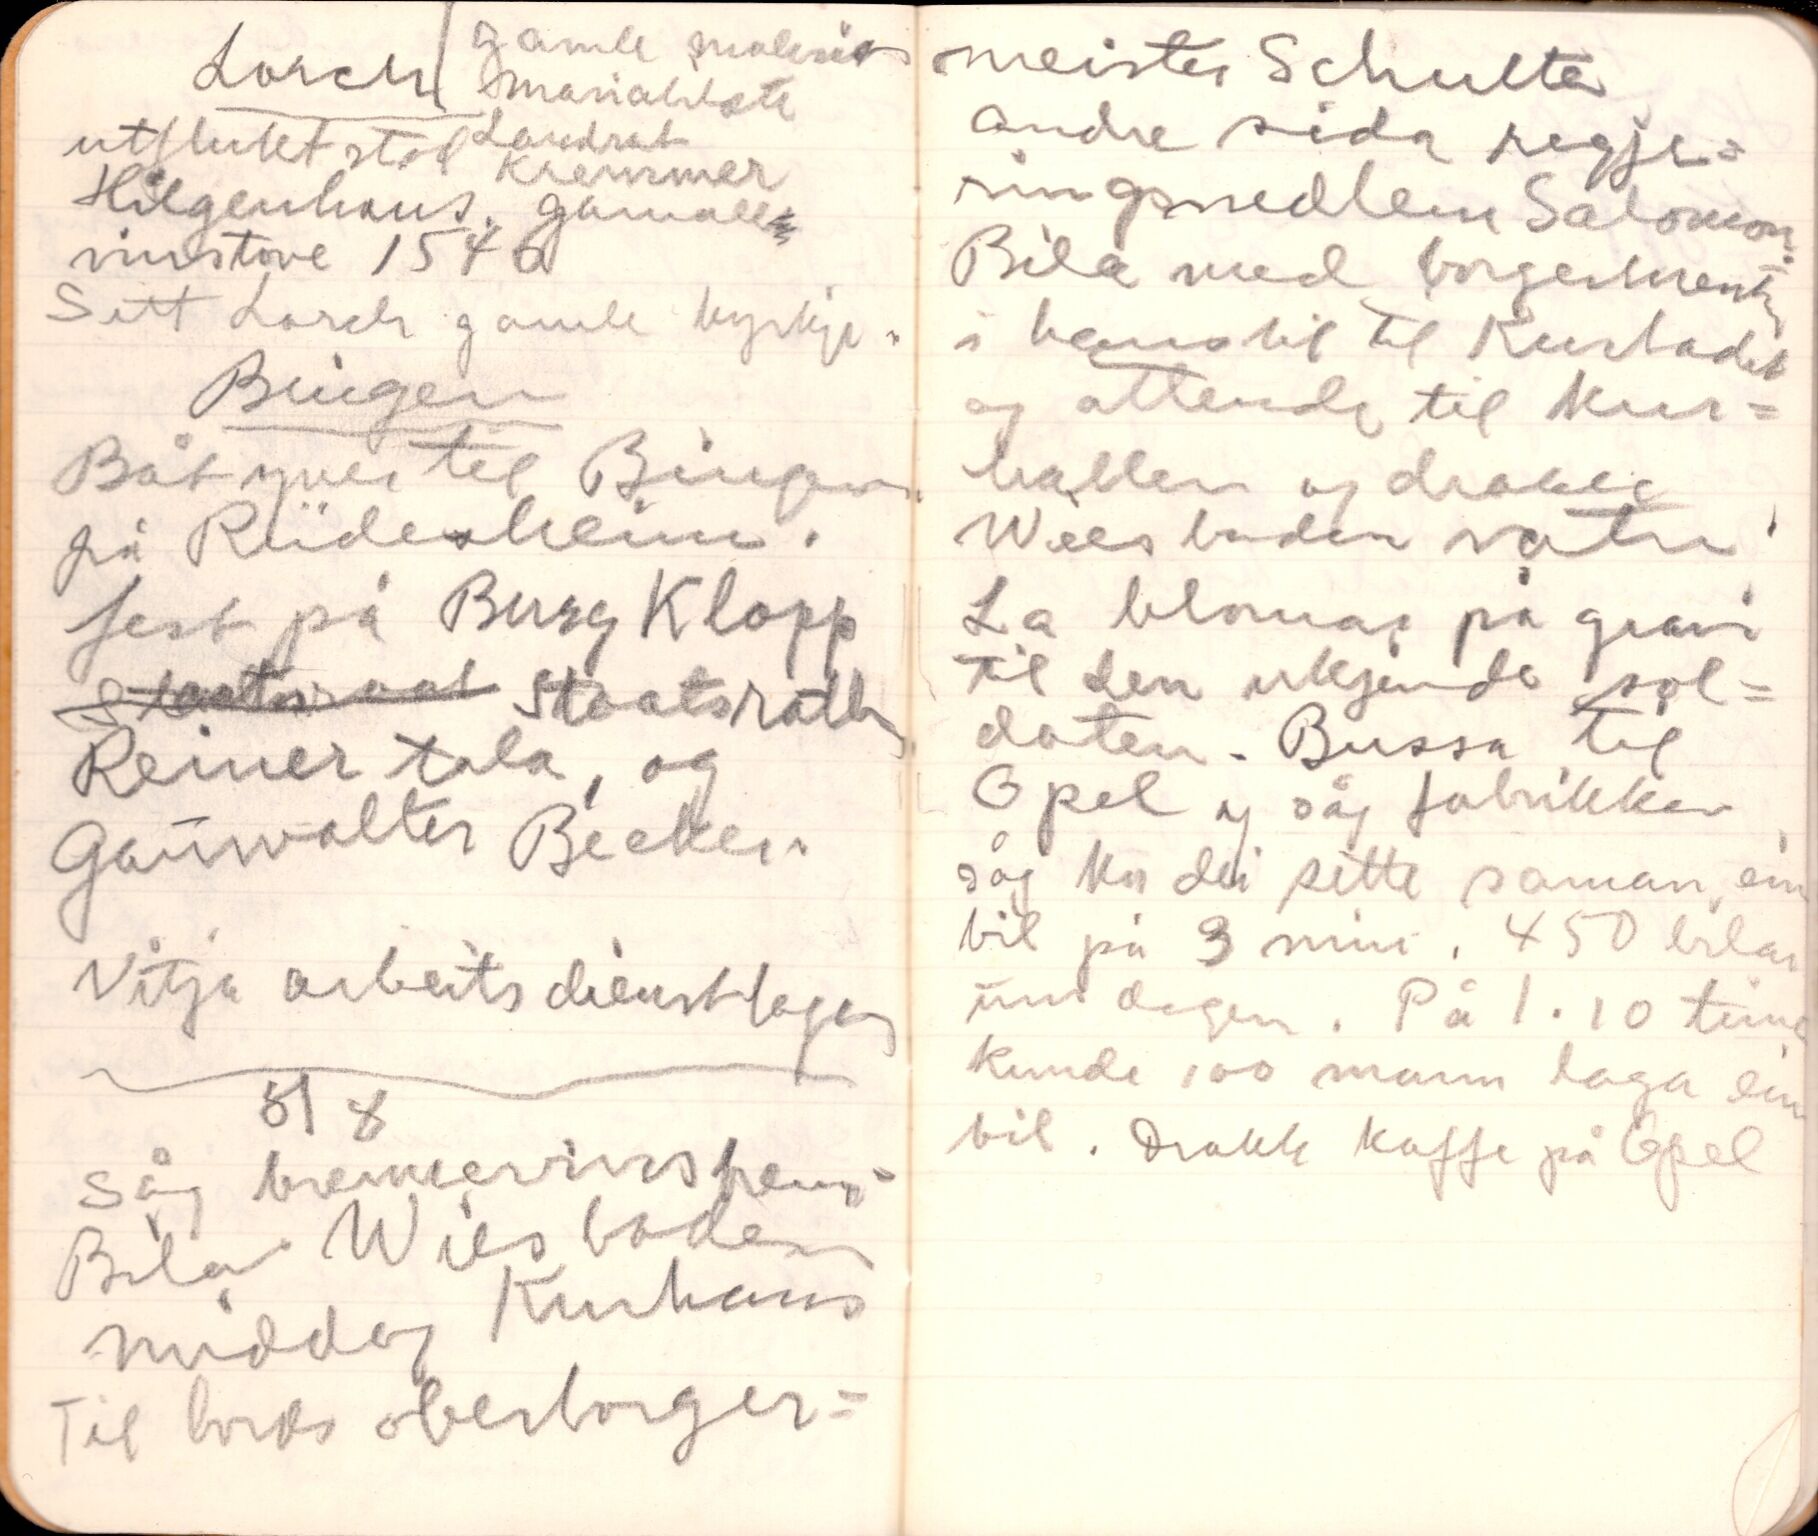 Lorch
gamle maleri
Landrat
Kremmer
utflukt stol
Hilgenhaus. gamall
vinstove 1546
Sett Lorch gamle kyrkje.
Bingen
Båt yver til Bingen
på Rüdesheim.
fest på Burg Klopp
Staatsraat Staatsrath
Reiner tala, og
Gauwalter Becker.
Vitja arbeitsdienstlager
31 8
Såg brennevinsbren=
Bila Wiesbaden
middag Kurhaus
Til bords oberborger=
meister Schulte
andre sida regje=
ringsmedlem Salomon.
Bila med borgermeister
i hans bil til Kurbadet
og attende til Kur=
hallen og drakk
Wiesbaden vatn
La blomar på gravi
til den ukjende sol=
daten. Bussa til
Opel og såg fabrikken
såg kor dei sette saman ein
bil på 3 min. 450 bilar
um dagen. På 1.10 time
kunde 100 mann laga ein
bil. Drakk kaffe på Opel